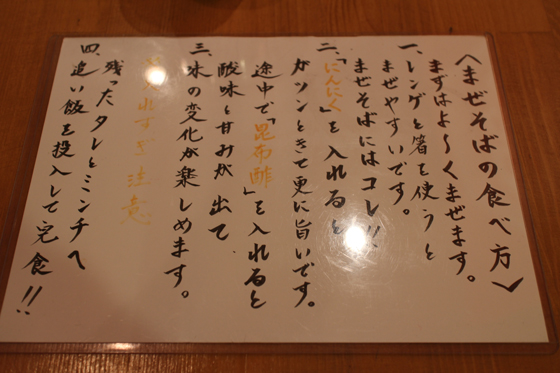 〈まぜそばの食べ方〉
まずはよ〜くまぜます。
一、レンゲと箸を使うと
まぜやすいです。
まぜそばにはコレ!!
二、「にんにく」を入れると
ガツンときて更に旨いです。
途中で「昆布酢」を入れると
酸味と甘みが出て
三、味の変化が楽しめます。
入れすぎ注意
残ったタレとミンチへ
四、追い飯を投入して完食!!